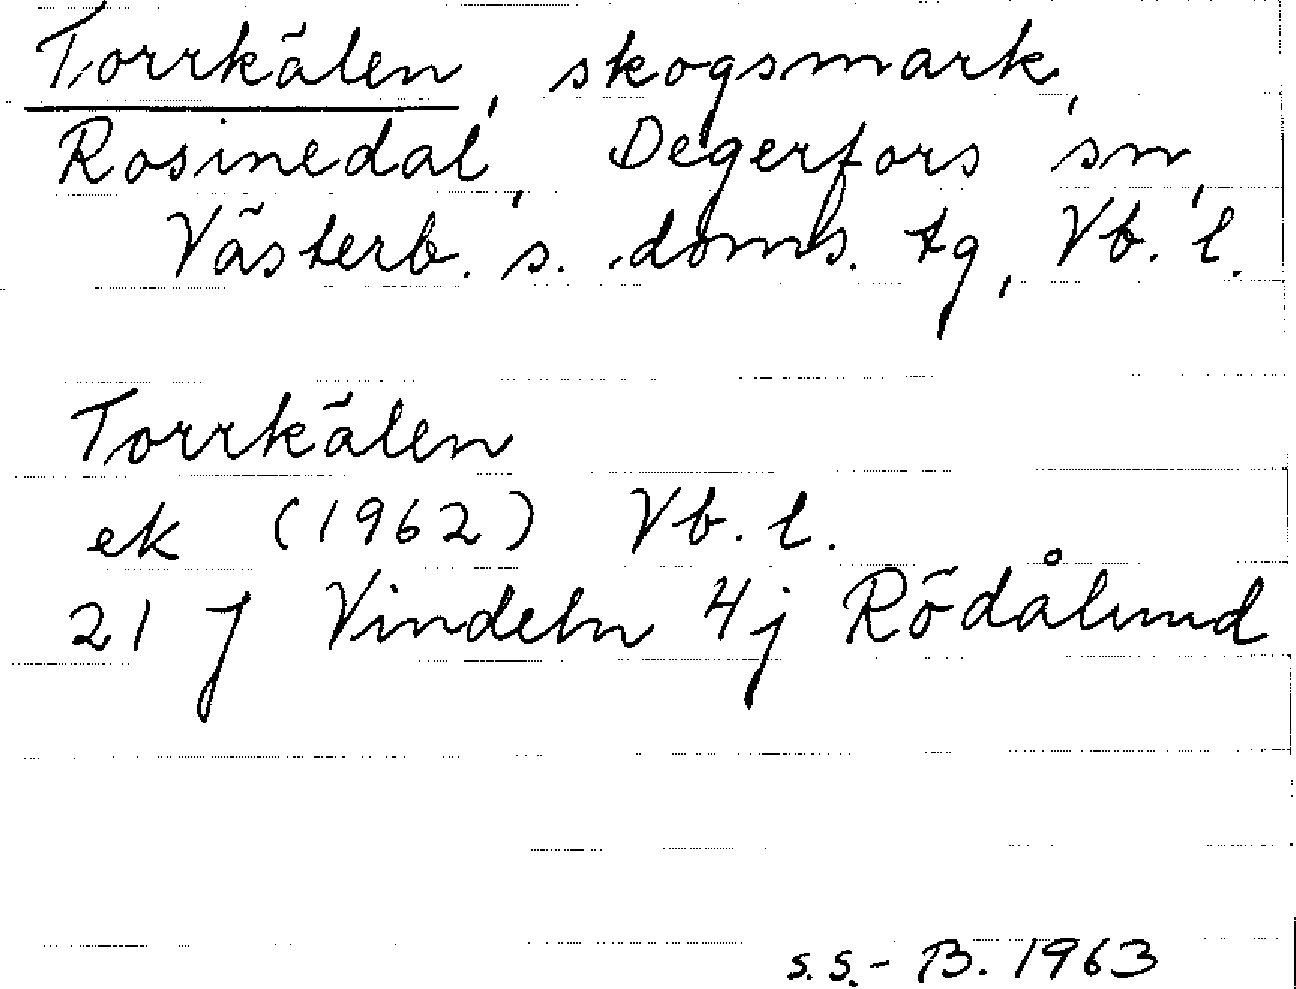 Torrkälen, skogsmark,
Rosinedal, Degerfors sn,
Västerb. s. doms. tg, Vb. l.
Torrkälen
ek (1962) Vb. l.
21 J Vindeln 4j Rödålund
s.s.- B. 1963